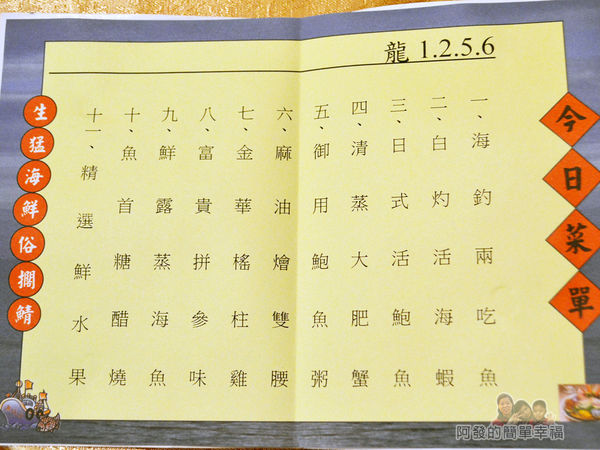 龍 1.2.5.6
今日菜單
一、海釣兩吃魚
二、白灼活海蝦
三、日式活鮑魚
四、清蒸大肥蟹
五、御用鮑魚粥
六、麻油燴雙腰
七、金華榣柱雞
八、富貴拼參味
九、鮮露蒸海魚
十、魚首糖醋燒
十一、精選鮮水果
生猛海鮮俗擱鯖
阿發的簡單幸福